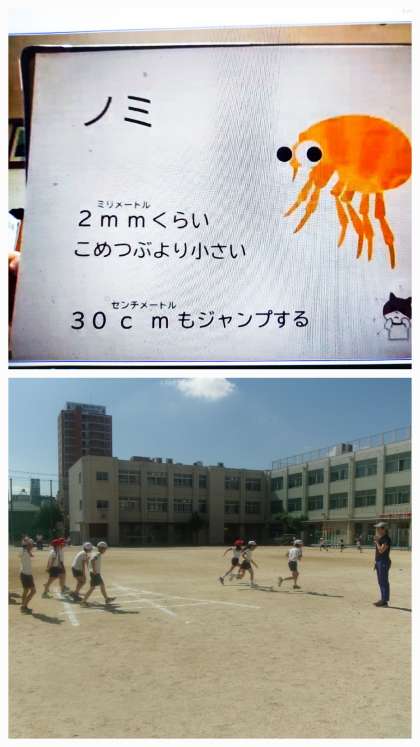 ノミ
ミリメートル
2mmくらい
こめつぶより小さい
センチメートル
30cmもジャンプする